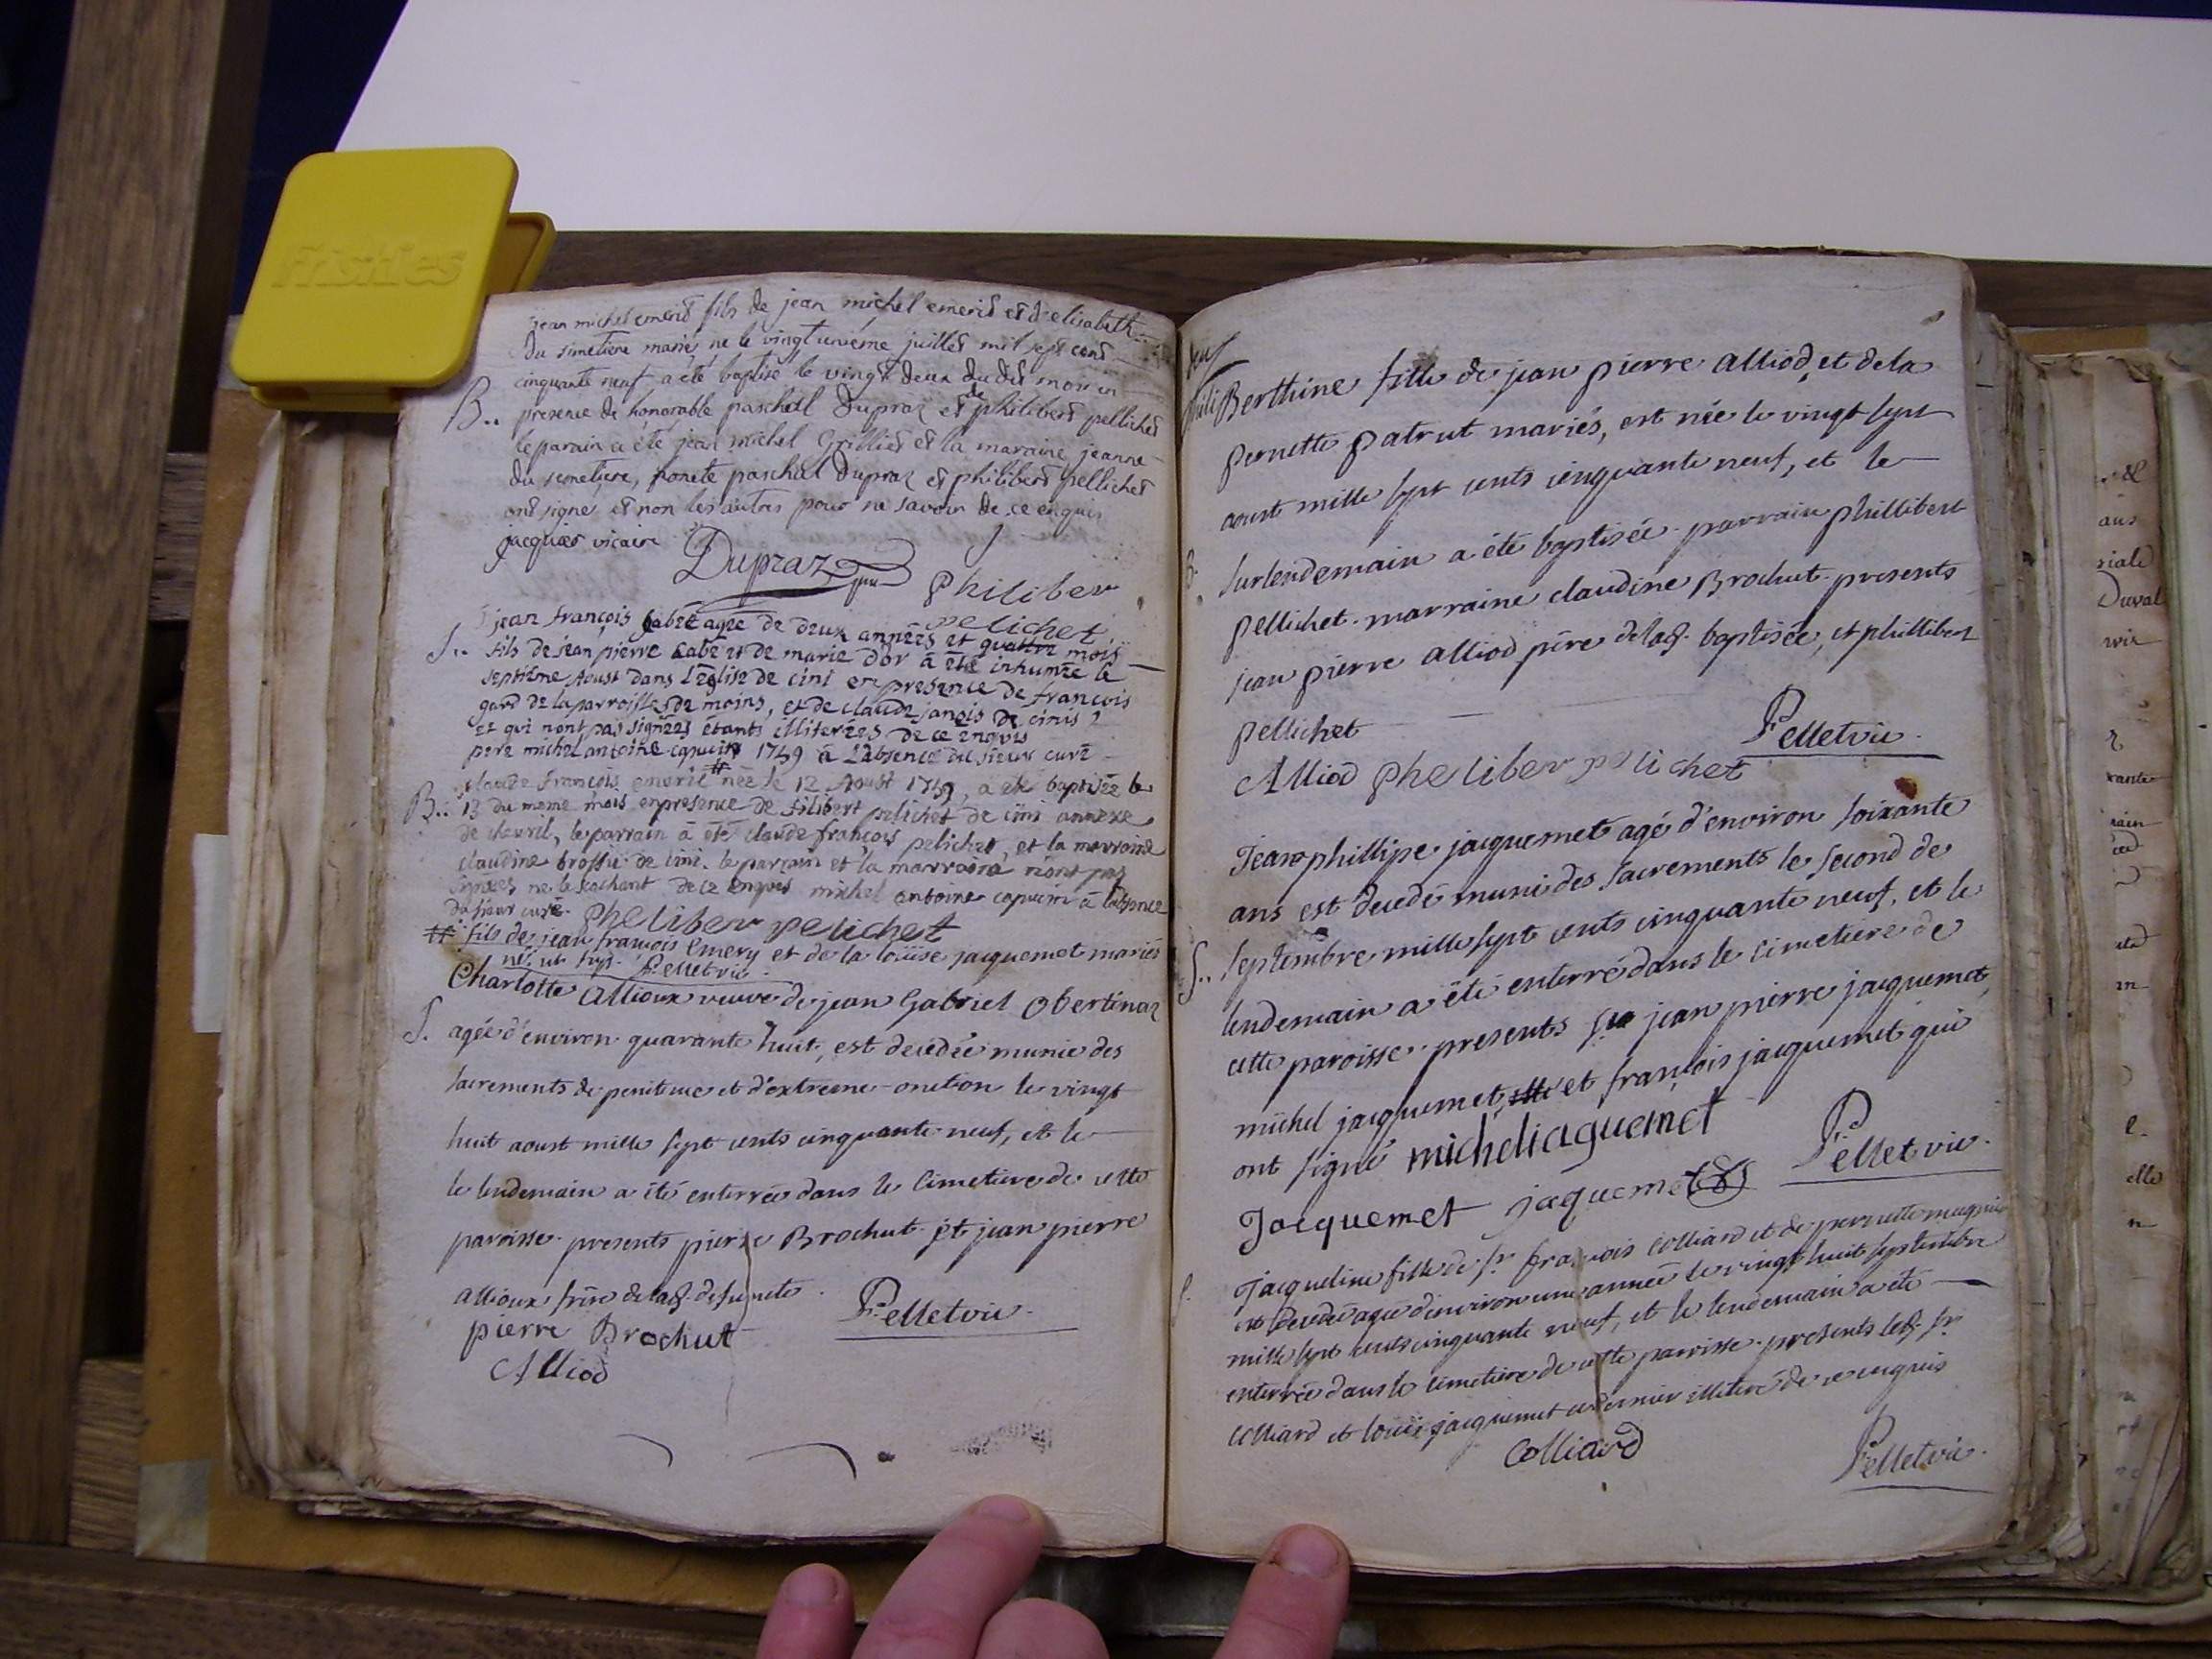 Friskies
jean michel emerid fils de jean michel emerid et d'elisabeth
du simetiere mariés ne le vingt unième juillet mil sept cens
cinquante neuf a été baptisé le vingt deux dudit mois en
B.. presence de honorable paschal Dupraz et de philibert pellichet
le parain a été jean michel Grillied et la maraine jeanne
du semetiere, paschal Dupraz et philibert pellichet
ont signé et non les autres pour ne savoir de ce enquis
jacquier vicaire
Dupraz
Philiber
pelichet
jean françois Labet agee de deux annèes et quattre mois
S.. fils de jean pierre Labe et de marie d'or à ètè inhumèe le
septième Aoust dans l'Eglise de cini en presence de françois
gard de la parroisse de moins, et de claude janeis de cinis
et qui nont pas signèes ètants illiterèes de ce enquis
pere michel antoine capucin 1759 à L'absence du sieur curè
claude françois emerie # nèe le 12 Aoust 1759, a ètè baptisèe le
B.. 13 du meme mois en presence de filibert pelichet de cini annexe
de clauril, le parrain à ètè claude françois pelichet, et la marraine
claudine brossu de cini. le parrain et la marraine n'ont pas
signèes ne le sachant de ce enquis michel antoine capucin à l'absence
du sieur curè. Pheliber pelichet
# fils de jean françois Emery et de la loüise jacquemet mariés
né. ut sup. Pelletvic.
Charlotte Allioux veuve de jean Gabriel Obertinaz
S. agée d'environ quarante huit, est decedée munie des
sacrements de penitence et d'extreme-onction le vingt
huit aoust mille sept cents cinquante neuf, et le
le lendemain a été enterrée dans le Cimetiere de cette
paroisse. presents pierre Brochut et jean pierre
allioux frère de lad. defuncte.
Pelletvic.
pierre Brochut
Alliod
Berthine fille de jean pierre Alliod, et de la
pernette patrut mariés, est née le vingt sept
aoust mille sept cents cinquante neuf, et le
B. surlendemain a été baptisée. parrain phillibert
pellichet. marraine claudine Brochut. presents
jean pierre Alliod père de lad. baptisée, et phillibert
pellichet
Pelletvic.
Alliod Pheliber pelichet
Jean phillipe jacquemet agé d'environ soixante
ans est decedé muni des sacrements le second de
S.. septembre mille sept cents cinquante neuf, et le
lendemain a été enterré dans le cimetiere de
cette paroisse. presents jean pierre jacquemet,
michel jacquemet, et françois jacquemet qui
ont signé michel iaquemet
Pelletvic.
Jacquemet jaquemet
S. Jacqueline fille de sr. françois Colliard et de pernette
est decedée agée d'environ une année le vingt huit septembre
mille sept cents cinquante neuf, et le lendemain a été
enterrée dans le cimetiere de cette paroisse. presents led. sr.
colliard et loüis jacquemet ce dernier illiteré de ce enquis
Colliard
Pelletvic.
Duval